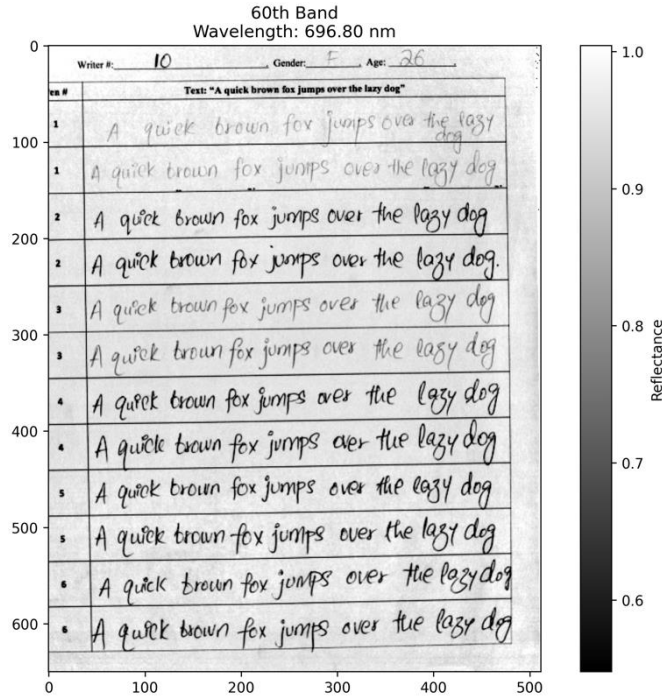 60th Band
Wavelength: 696.80 nm
Writer #: 10 Gender: F Age: 26
en # Text: "A quick brown fox jumps over the lazy dog"
1 A quick brown fox jumps over the lazy
dog
1 A quick brown fox jumps over the lazy dog
2 A quick brown fox jumps over the lazy dog
2 A quick brown fox jumps over the lazy dog.
3 A quick brown fox jumps over the lazy dog
3 A quick brown fox jumps over the lazy dog
4 A quick brown fox jumps over the lazy dog
4 A quick brown fox jumps over the lazy dog
5 A quick brown fox jumps over the lazy dog
5 A quick brown fox jumps over the lazy dog
6 A quick brown fox jumps over the lazy dog
6 A quick brown fox jumps over the lazy dog
0
100
200
300
400
500
600
0 100 200 300 400 500
1.0
0.9
0.8
0.7
0.6
Reflectance